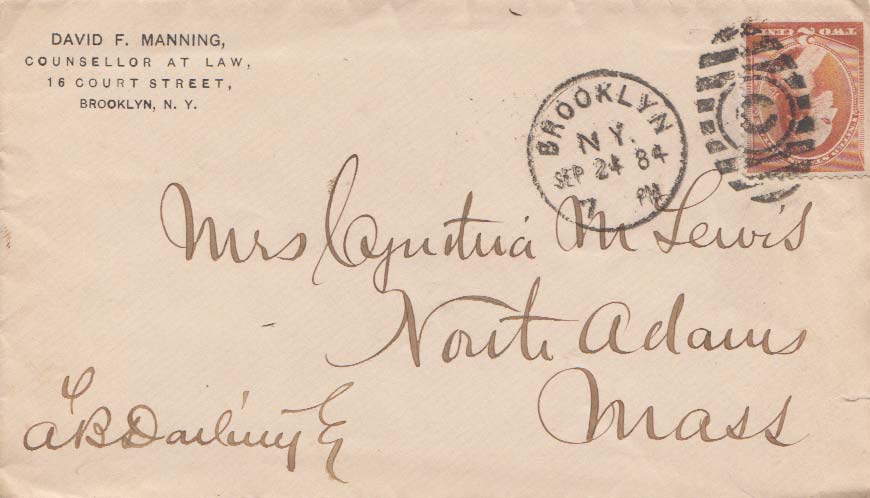 DAVID F. MANNING,
COUNSELLOR AT LAW,
16 COURT STREET,
BROOKLYN, N. Y.
BROOKLYN
N.Y.
SEP 24 84
7 PM
C
TWO CENTS
Mrs Cynthia M Lewis
North Adams
Mass
℅
A B Darling Esq